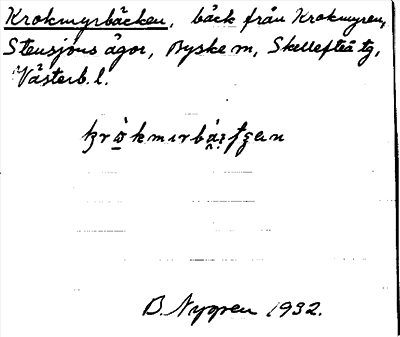 Krokmyrbäcken, bäck från Krokmyren,
Stensjöns ägor, Byske m, Skellefteå tg,
Västerb. l.
B. Nygren 1932.